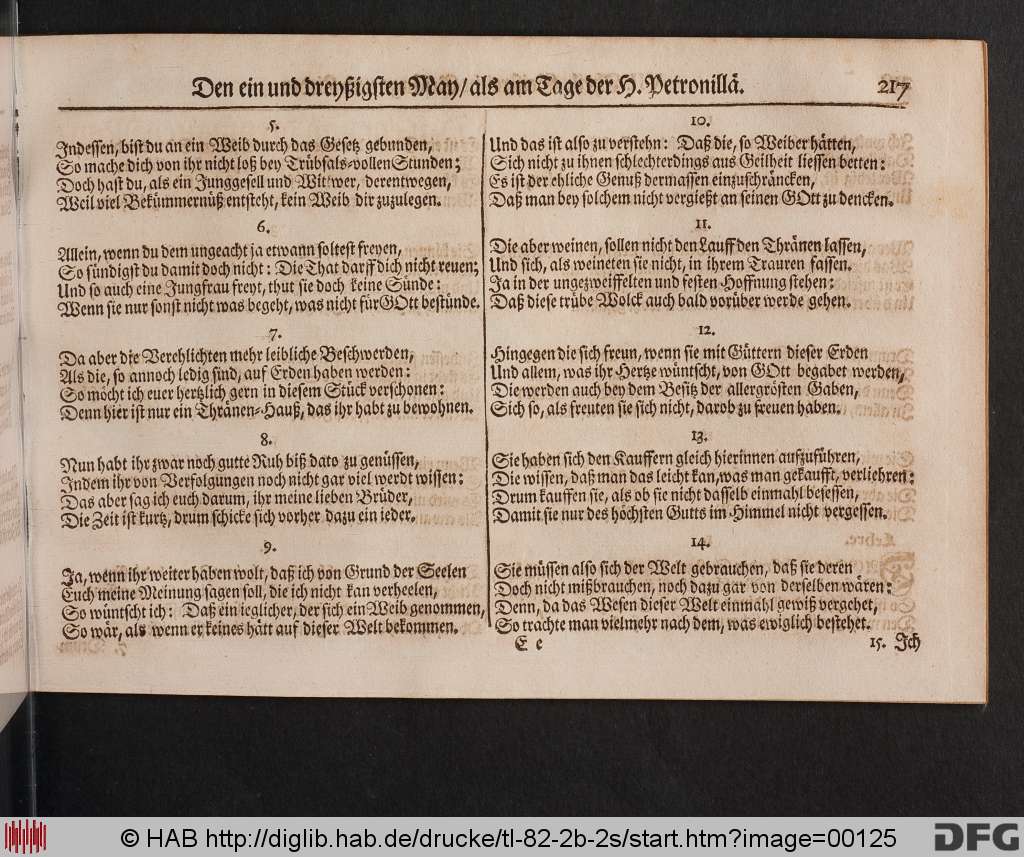 Den ein und dreyßigsten May/ als am Tage der H. Petronillä.
217
5.
Indessen, bist du an ein Weib durch das Gesetz gebunden,
So mache dich von ihr nicht loß bey Trübsals-vollen Stunden;
Doch hast du, als ein Junggesell und Witwer, derentwegen,
Weil viel Bekümmernüß entsteht, kein Weib dir zuzulegen.
6.
Allein, wenn du dem ungeacht ja etwann soltest freyen,
So sündigst du damit doch nicht: Die That darff dich nicht reuen;
Und so auch eine Jungfrau freyt, thut sie doch keine Sünde:
Wenn sie nur sonst nicht was begeht, was nicht für GOtt bestünde.
7.
Da aber die Verehlichten mehr leibliche Beschwerden,
Als die, so annoch ledig sind, auf Erden haben werden:
So möcht ich euer hertzlich gern in diesem Stück verschonen:
Denn hier ist nur ein Thränen-Hauß, das ihr habt zu bewohnen.
8.
Nun habt ihr zwar noch gutte Ruh biß dato zu genüssen,
Indem ihr von Verfolgungen noch nicht gar viel werdt wissen:
Das aber sag ich euch darum, ihr meine lieben Brüder,
Die Zeit ist kurtz, drum schicke sich vorher dazu ein ieder.
9.
Ja, wenn ihr weiter haben wolt, daß ich von Grund der Seelen
Euch meine Meinung sagen soll, die ich nicht kan verheelen,
So wüntscht ich: Daß ein ieglicher, der sich ein Weib genommen,
So wär, als wenn er keines hätt auf dieser Welt bekommen.
10.
Und das ist also zu verstehn: Daß die, so Weiber hätten,
Sich nicht zu ihnen schlechterdings aus Geilheit liessen betten:
Es ist der ehliche Genuß dermassen einzuschräncken,
Daß man bey solchem nicht vergießt an seinen GOtt zu dencken.
11.
Die aber weinen, sollen nicht den Lauff den Thränen lassen,
Und sich, als weineten sie nicht, in ihrem Trauren fassen.
Ja in der ungezweiffelten und festen Hoffnung stehen:
Daß diese trübe Wolck auch bald vorüber werde gehen.
12.
Hingegen die sich freun, wenn sie mit Güttern dieser Erden
Und allem, was ihr Hertze wüntscht, von GOtt begabet werden,
Die werden auch bey dem Besitz der allergrösten Gaben,
Sich so, als freuten sie sich nicht, darob zu freuen haben.
13.
Sie haben sich den Kauffern gleich hierinnen aufzuführen,
Die wissen, daß man das leicht kan, was man gekaufft, verliehren:
Drum kauffen sie, als ob sie nicht dasselb einmahl besessen,
Damit sie nur des höchsten Gutts im Himmel nicht vergessen.
14.
Sie müssen also sich der Welt gebrauchen, daß sie deren
Doch nicht mißbrauchen, noch dazu gar von derselben wären:
Denn, da das Wesen dieser Welt einmahl gewiß vergehet,
So trachte man vielmehr nach dem, was ewiglich bestehet.
E e
15. Ich
© HAB http://diglib.hab.de/drucke/tl-82-2b-2s/start.htm?image=00125
DFG